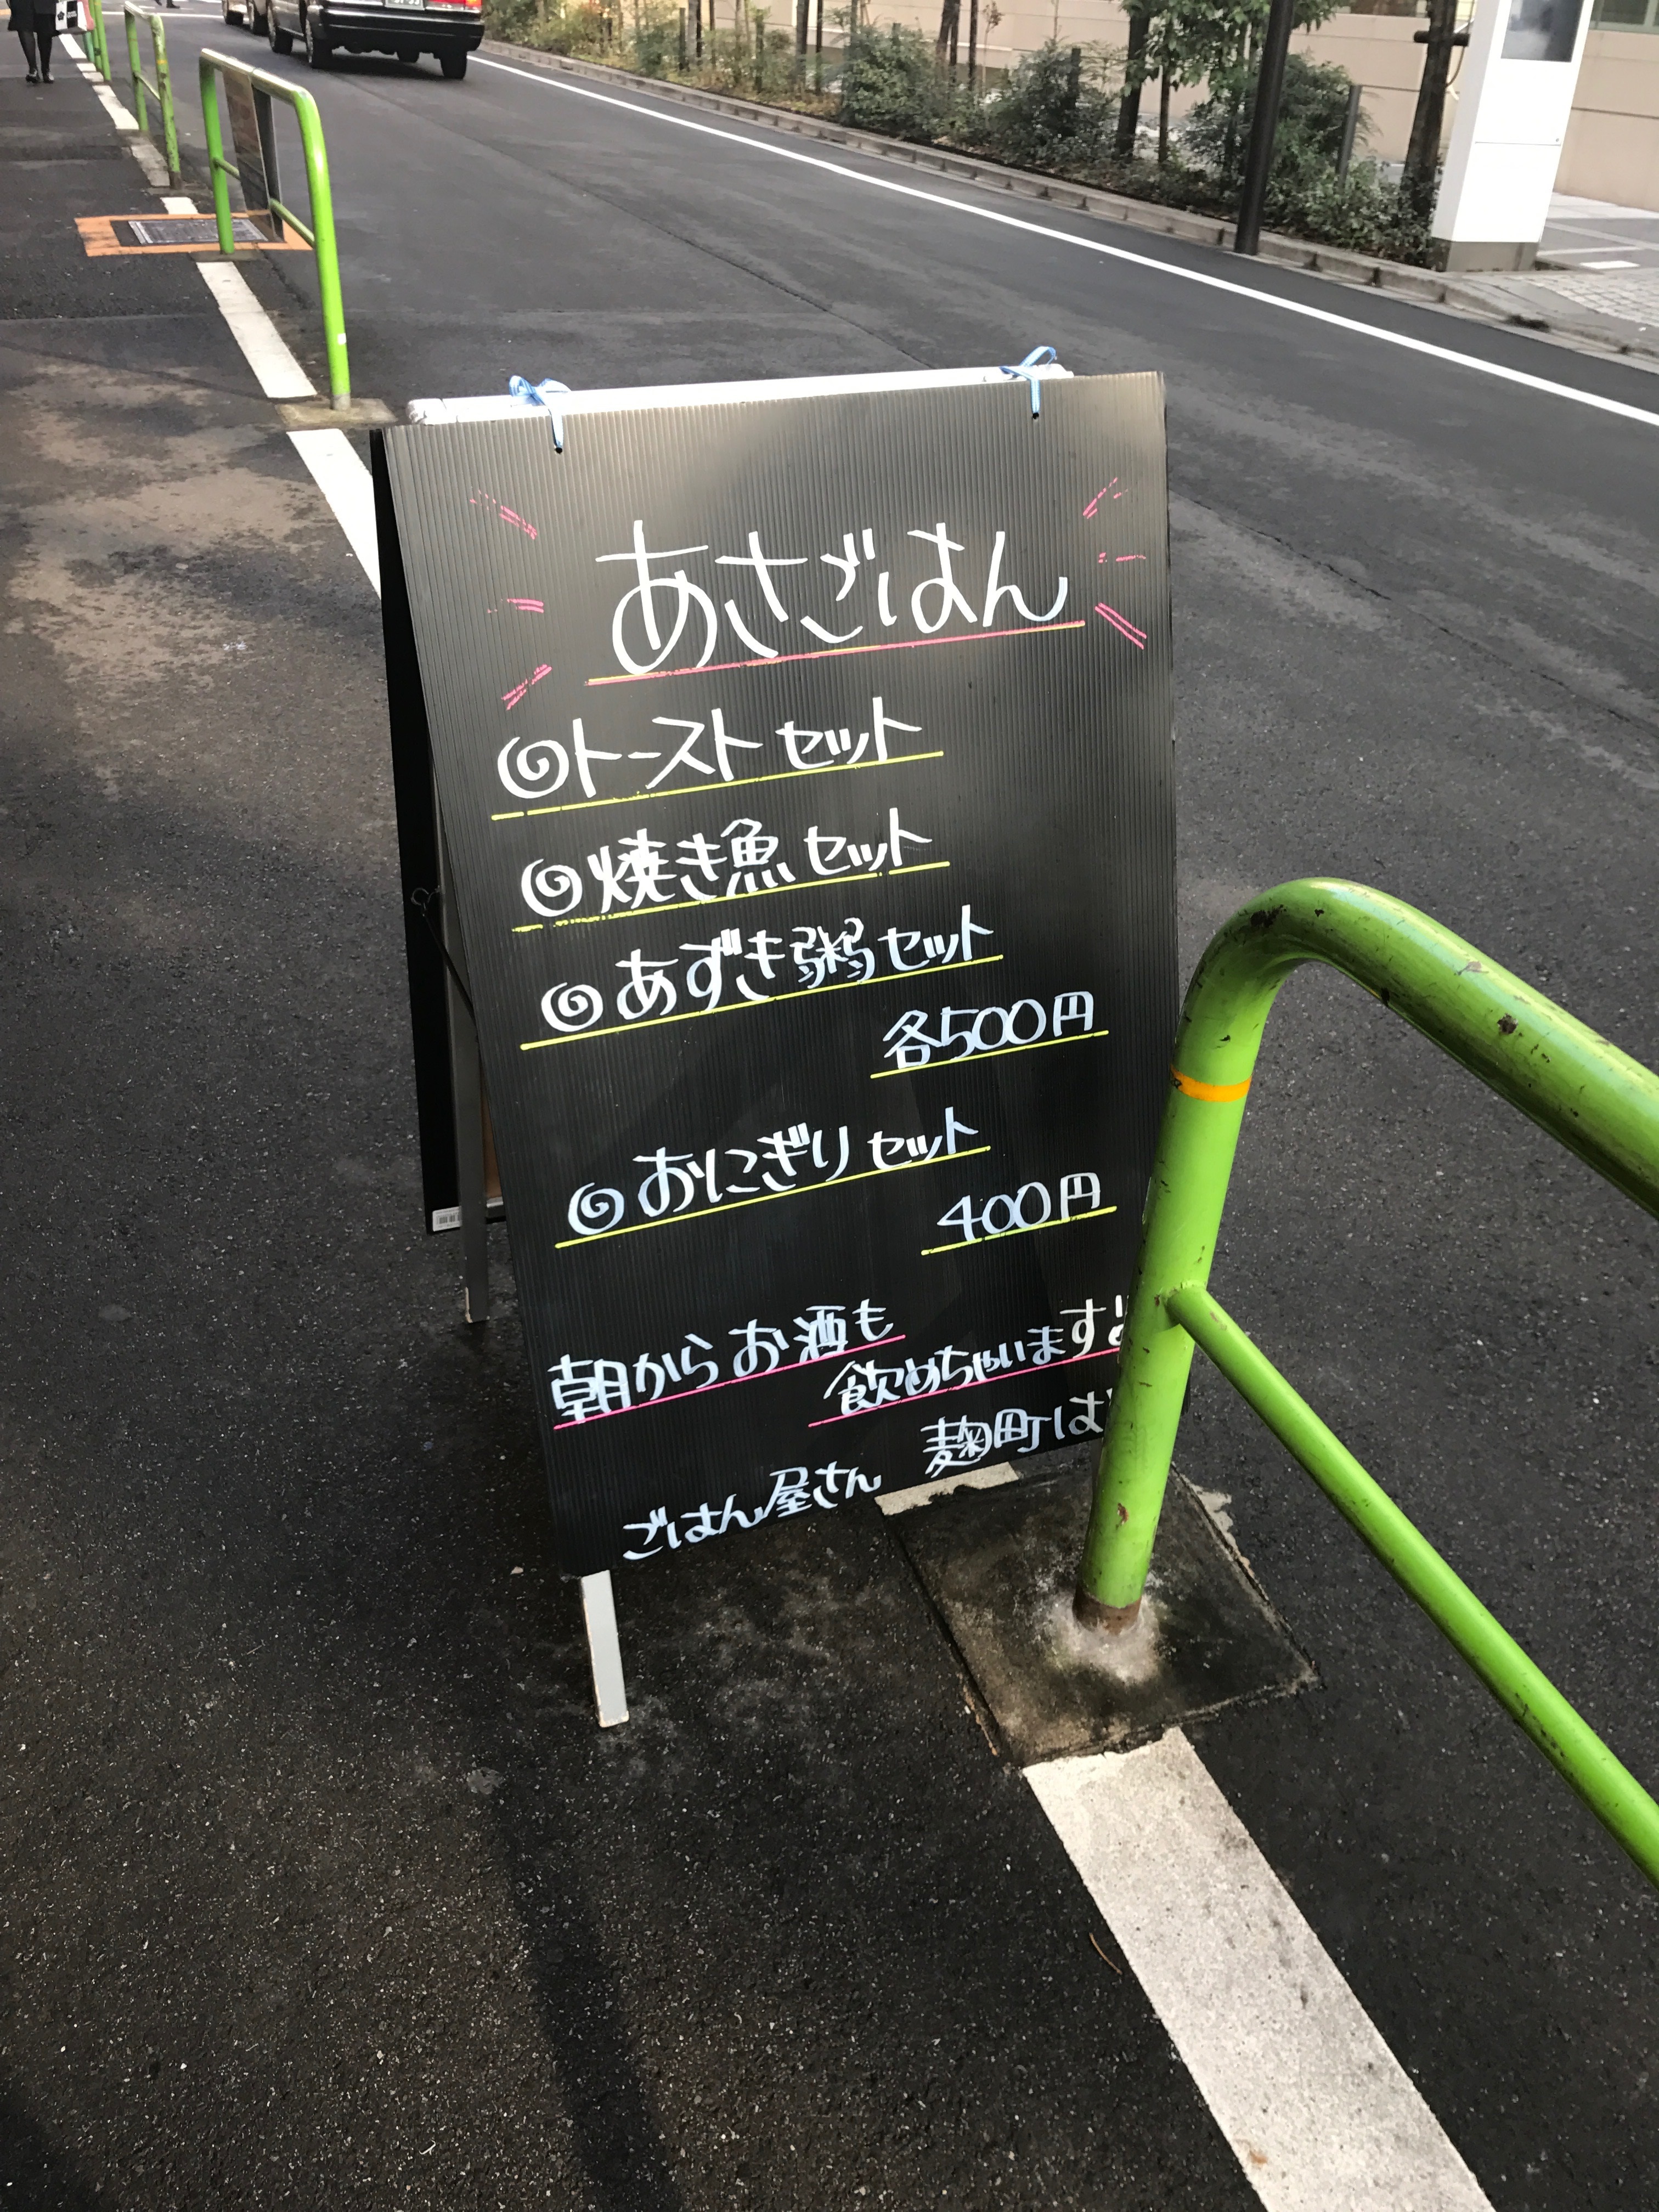 あさごはん
トースト セット
焼き魚 セット
あずき粥 セット
各500円
おにぎり セット
400円
朝からお酒も
飲めちゃいます
麹町
ごはん屋さん